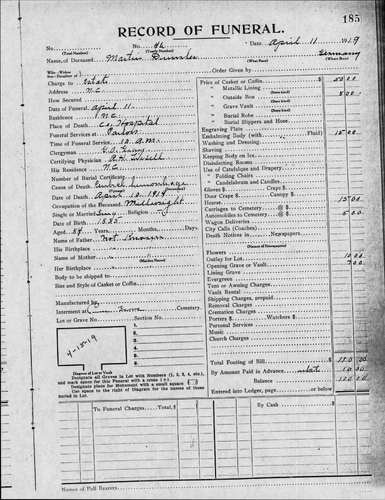 185
RECORD OF FUNERAL.
No. 54 Date, April 11 1919
(Total Number) (Yearly Number)
Name of Deceased, Martin Germany
(What Race) (Where Born)
Order Given by
Charge to Estate
Address N.C.
How Secured
Date of Funeral, April 11.
Residence N.C.
Place of Death, Co. Hospital
Funeral Services at Parlors
Time of Funeral Service, 10 A.M.
Clergyman
Certifying Physician
His Residence N.C.
Number of Burial Certificate
Cause of Death, Cerebral hemorrhage
Date of Death April 10. 1919
Occupation of the Deceased, Millwright
Single or Married, Sing Religion
Date of Birth, 1835
Aged 84 Years, Months, Days.
Name of Father, Not known
His Birthplace
Name of Mother "
(Maiden Name)
Her Birthplace "
Body to be shipped to
Size and Style of Casket or Coffin,
Manufactured by
Interment at Cemetery.
Lot or Grave No. Section No.
4-15-19
1
2
3
4
5
6
Diagram of Lot or Vault
Designate all Graves in Lot with Numbers (1, 2, 3, 4, etc.),
and mark space for this Funeral with a cross (+).
Designate place for Monument with a small square
Use space to the right of Diagram for the names of those
buried in Lot.
Price of Casket or Coffin, 50 00
" Metallic Lining
" Outside Box 5 00
" Grave Vault
" Burial Robe
" Burial Slippers and Hose
Engraving Plate
Embalming Body (with Fluid) 15 00
Washing and Dressing
Shaving
Keeping Body on Ice
Disinfecting Rooms
Use of Catafalque and Drapery
" Folding Chairs
" Candelabrum and Candles
Gloves $ Crape $
Door Crape $ Canopy $
Hearse 15 00
Carriages to Cemetery @ $
Automobiles to Cemetery @ $ 5 00
Wagon Deliveries
City Calls (Coaches)
Death Notices in Newspapers
(Names of Newspapers)
Flowers
Outlay for Lot 10 00
Opening Grave or Vault
Lining Grave
Evergreen
Tent or Awning Charges
Vault Rental
Shipping Charges, prepaid
Removal Charges
Cremation Charges
Porters $ Watchers $
Personal Services
Music
Church Charges
Total Footing of Bill
By Amount Paid in Advance
Balance
Entered into Ledger, page or below
To Funeral Charges, Total, $
By Cash $
Names of Pall Bearers